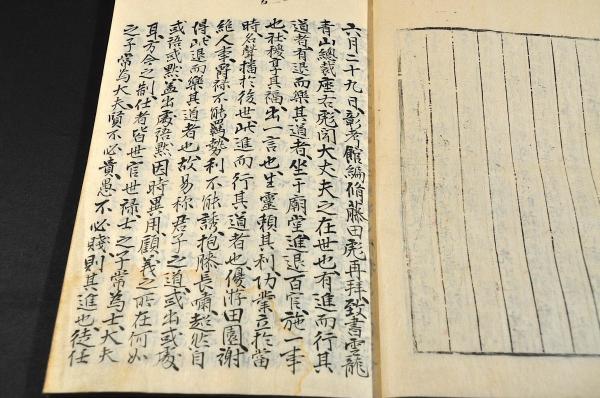 六月二十九日彰考館編脩藤田彪再拜致書雲龍
青山總裁座右彪聞大丈夫之在世也有進而行其
道者有退而樂其道者坐于廟堂進退百官施一事
也社稷享其福出一言也生靈賴其利功業立於當
時名聲播於後世此進而行其道者也優游田園謝
絶人事爵祿不能羈勢利不能誘抱膝長嘯超然自
得此退而樂其道者也故易稱君子之道或出或處
或語或默蓋出處語默因時異用顧義之所在何如
耳方今之制任者皆世官世祿士之子常為士大夫
之子常為大夫賢不必貴愚不必賤則其進也徒任